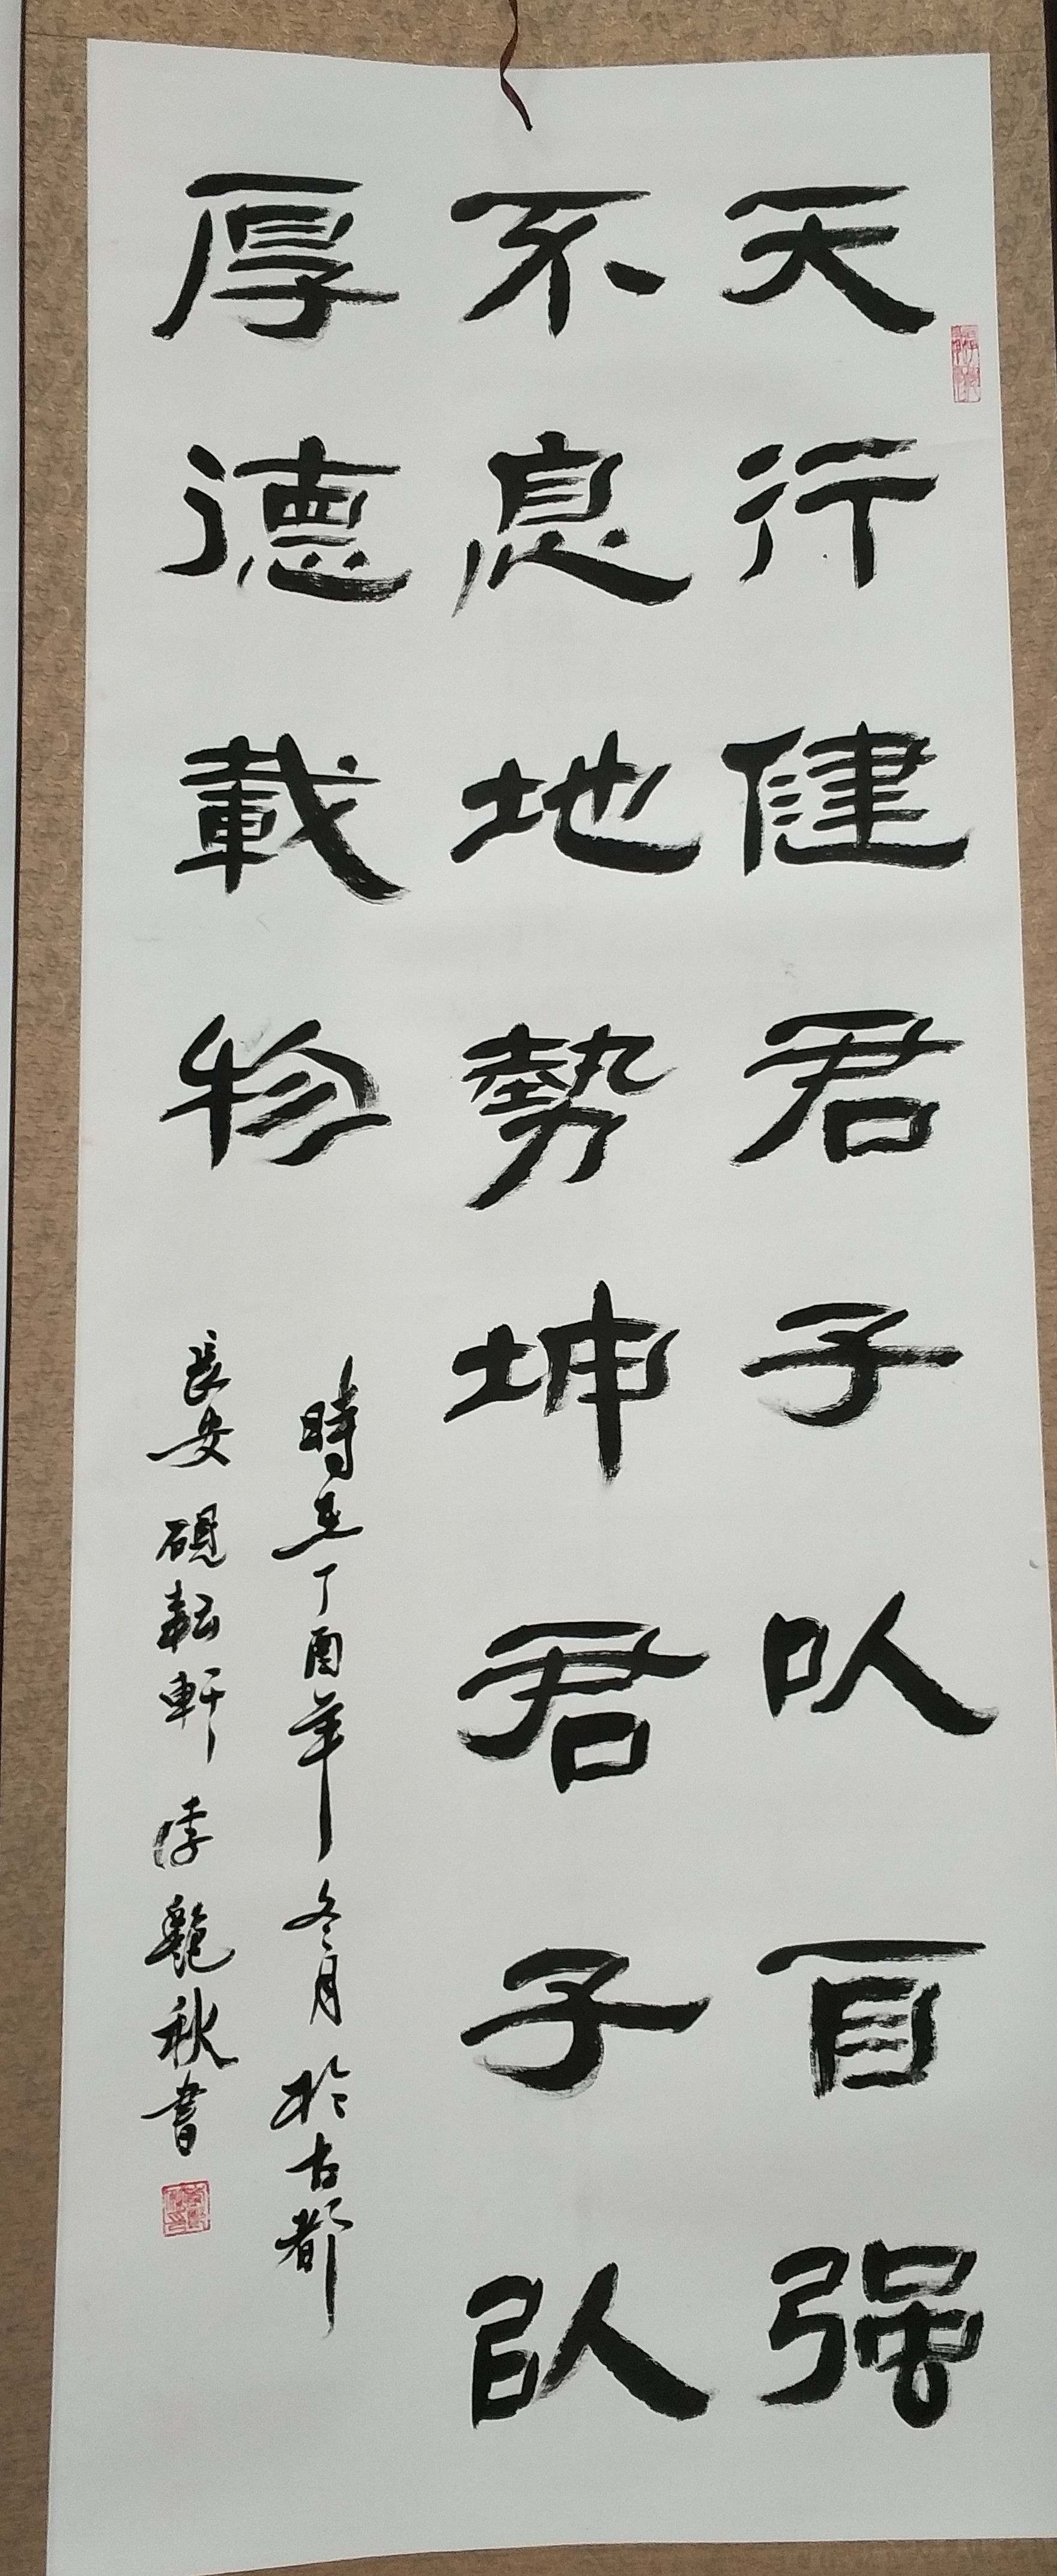 天行健君子以自强
不息地勢坤君子以
厚德載物
時在丁酉年冬月於古都
長安硯耘軒李艷秋書